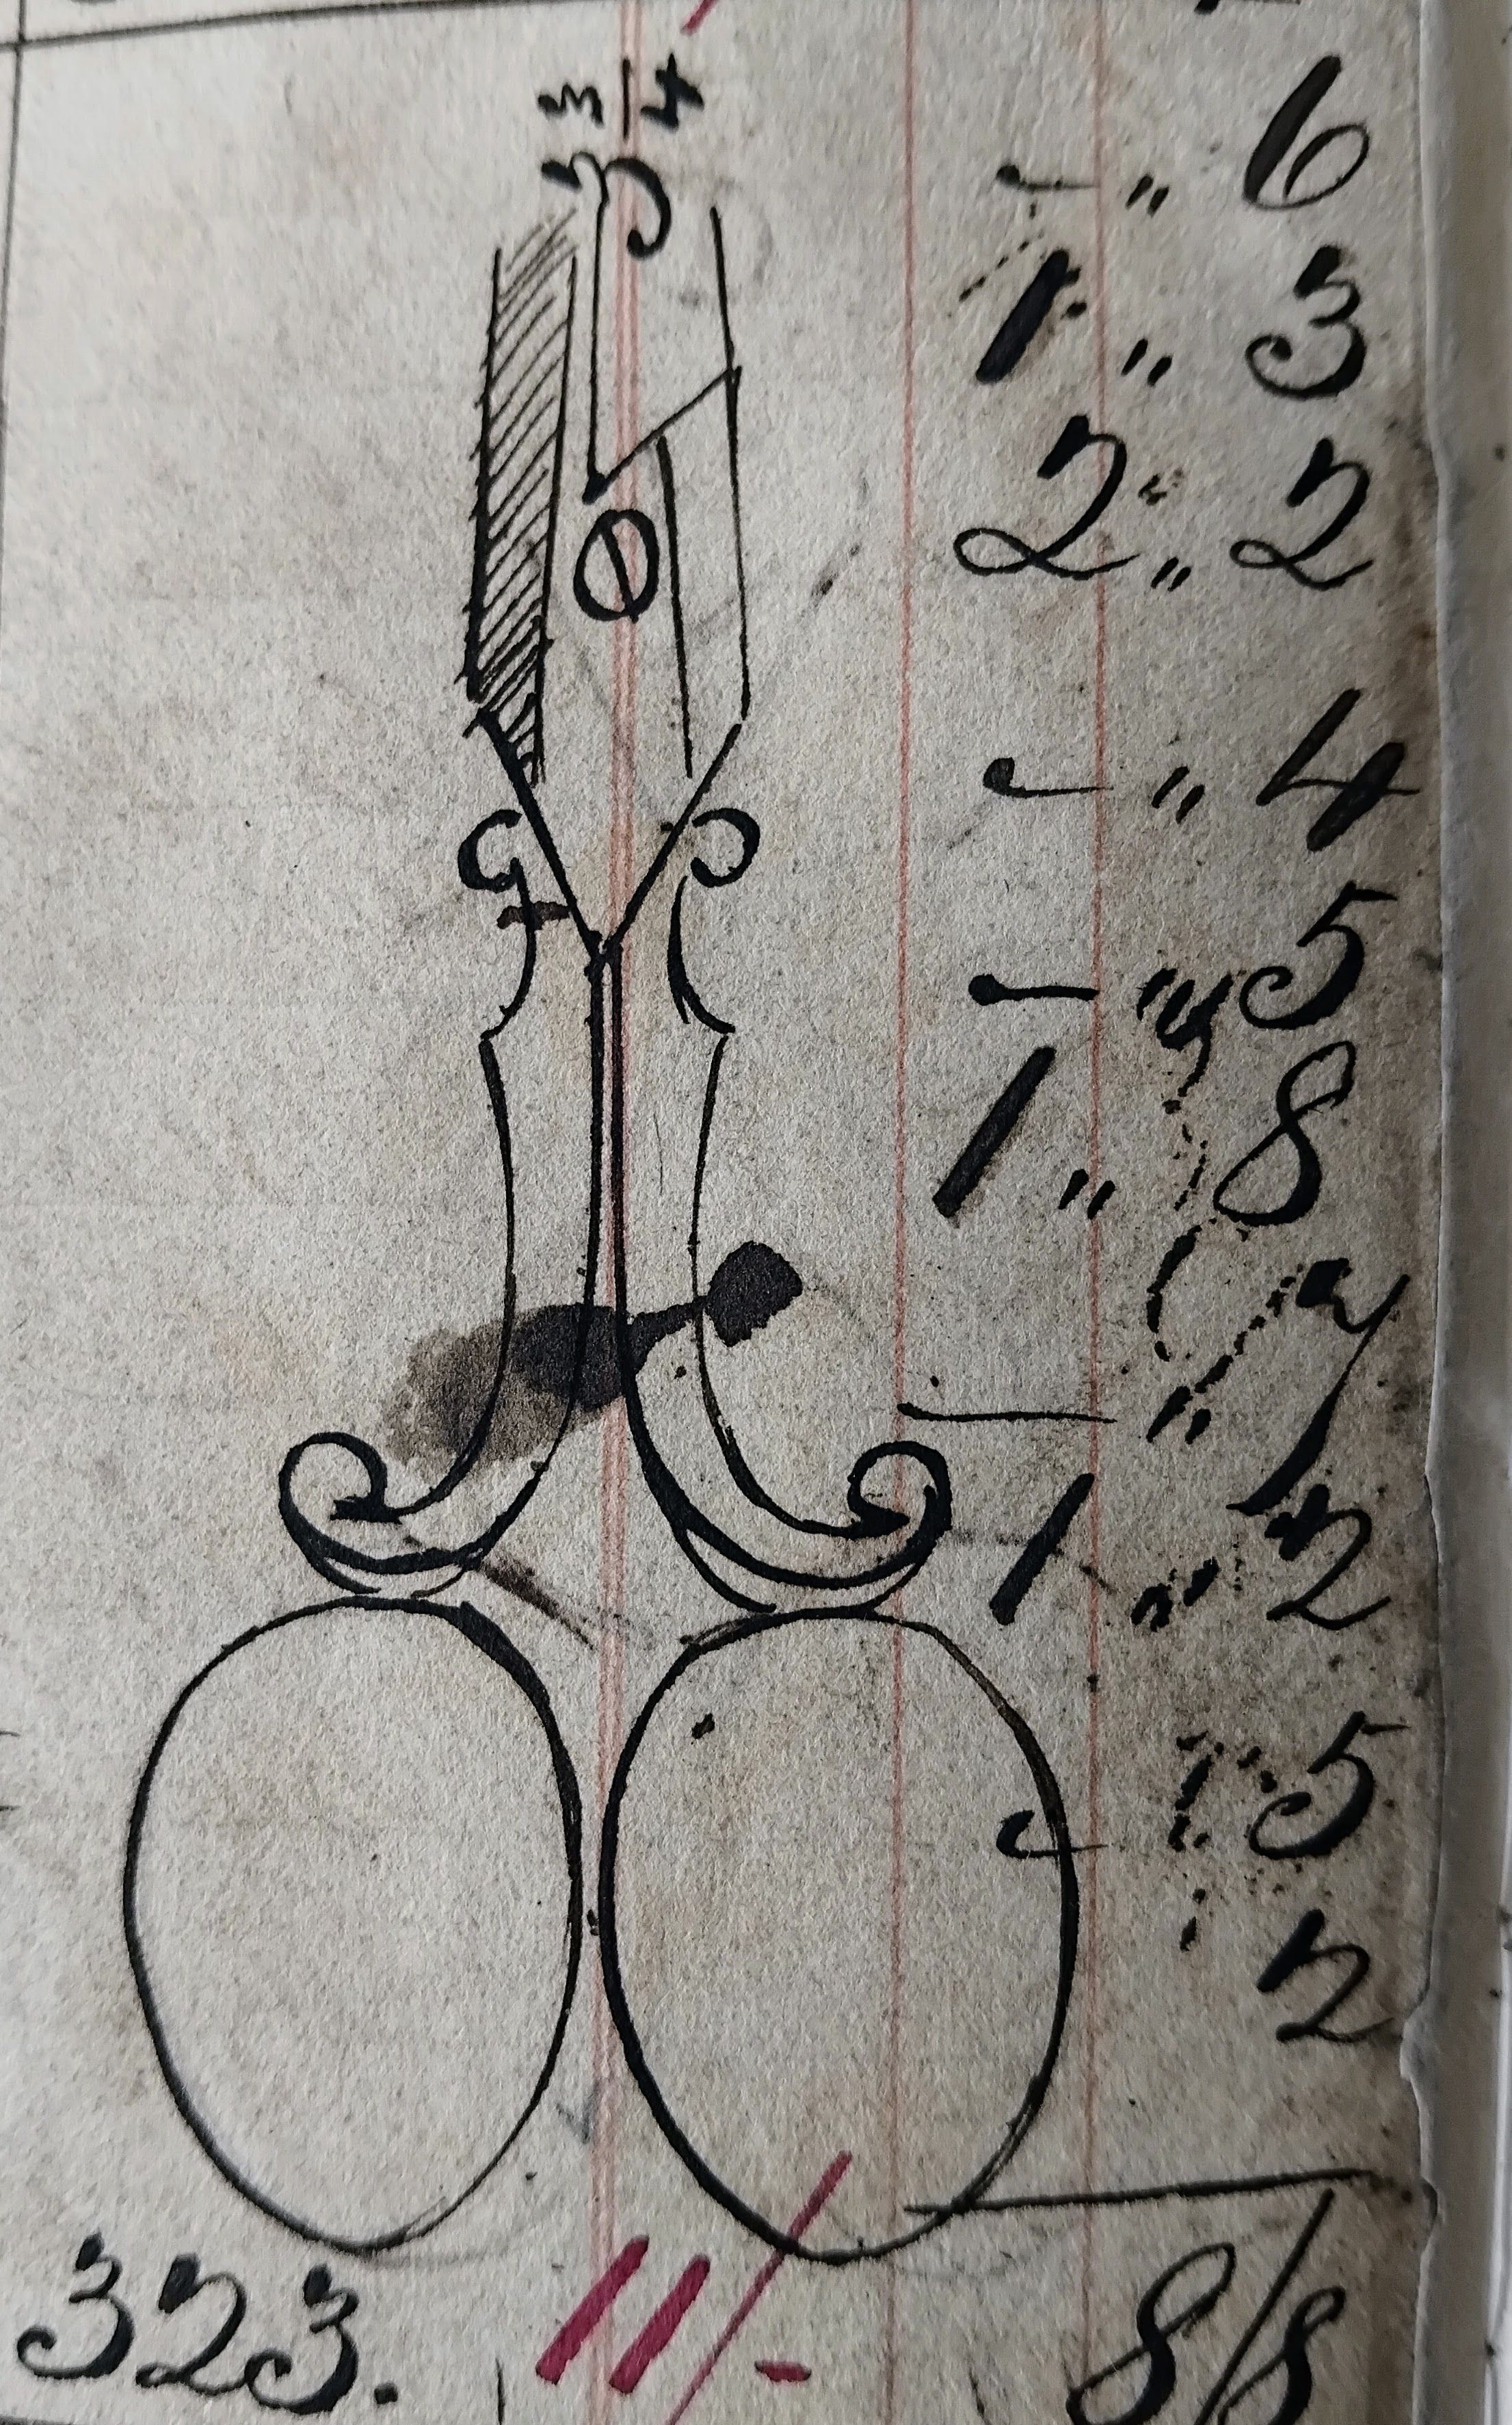 3 3/4
- " 6
1 " 3
2 " 2
- " 4
- " 5
1 " 8
- " 7
1 " 2
- " 5
2
323. 11/- 8/8